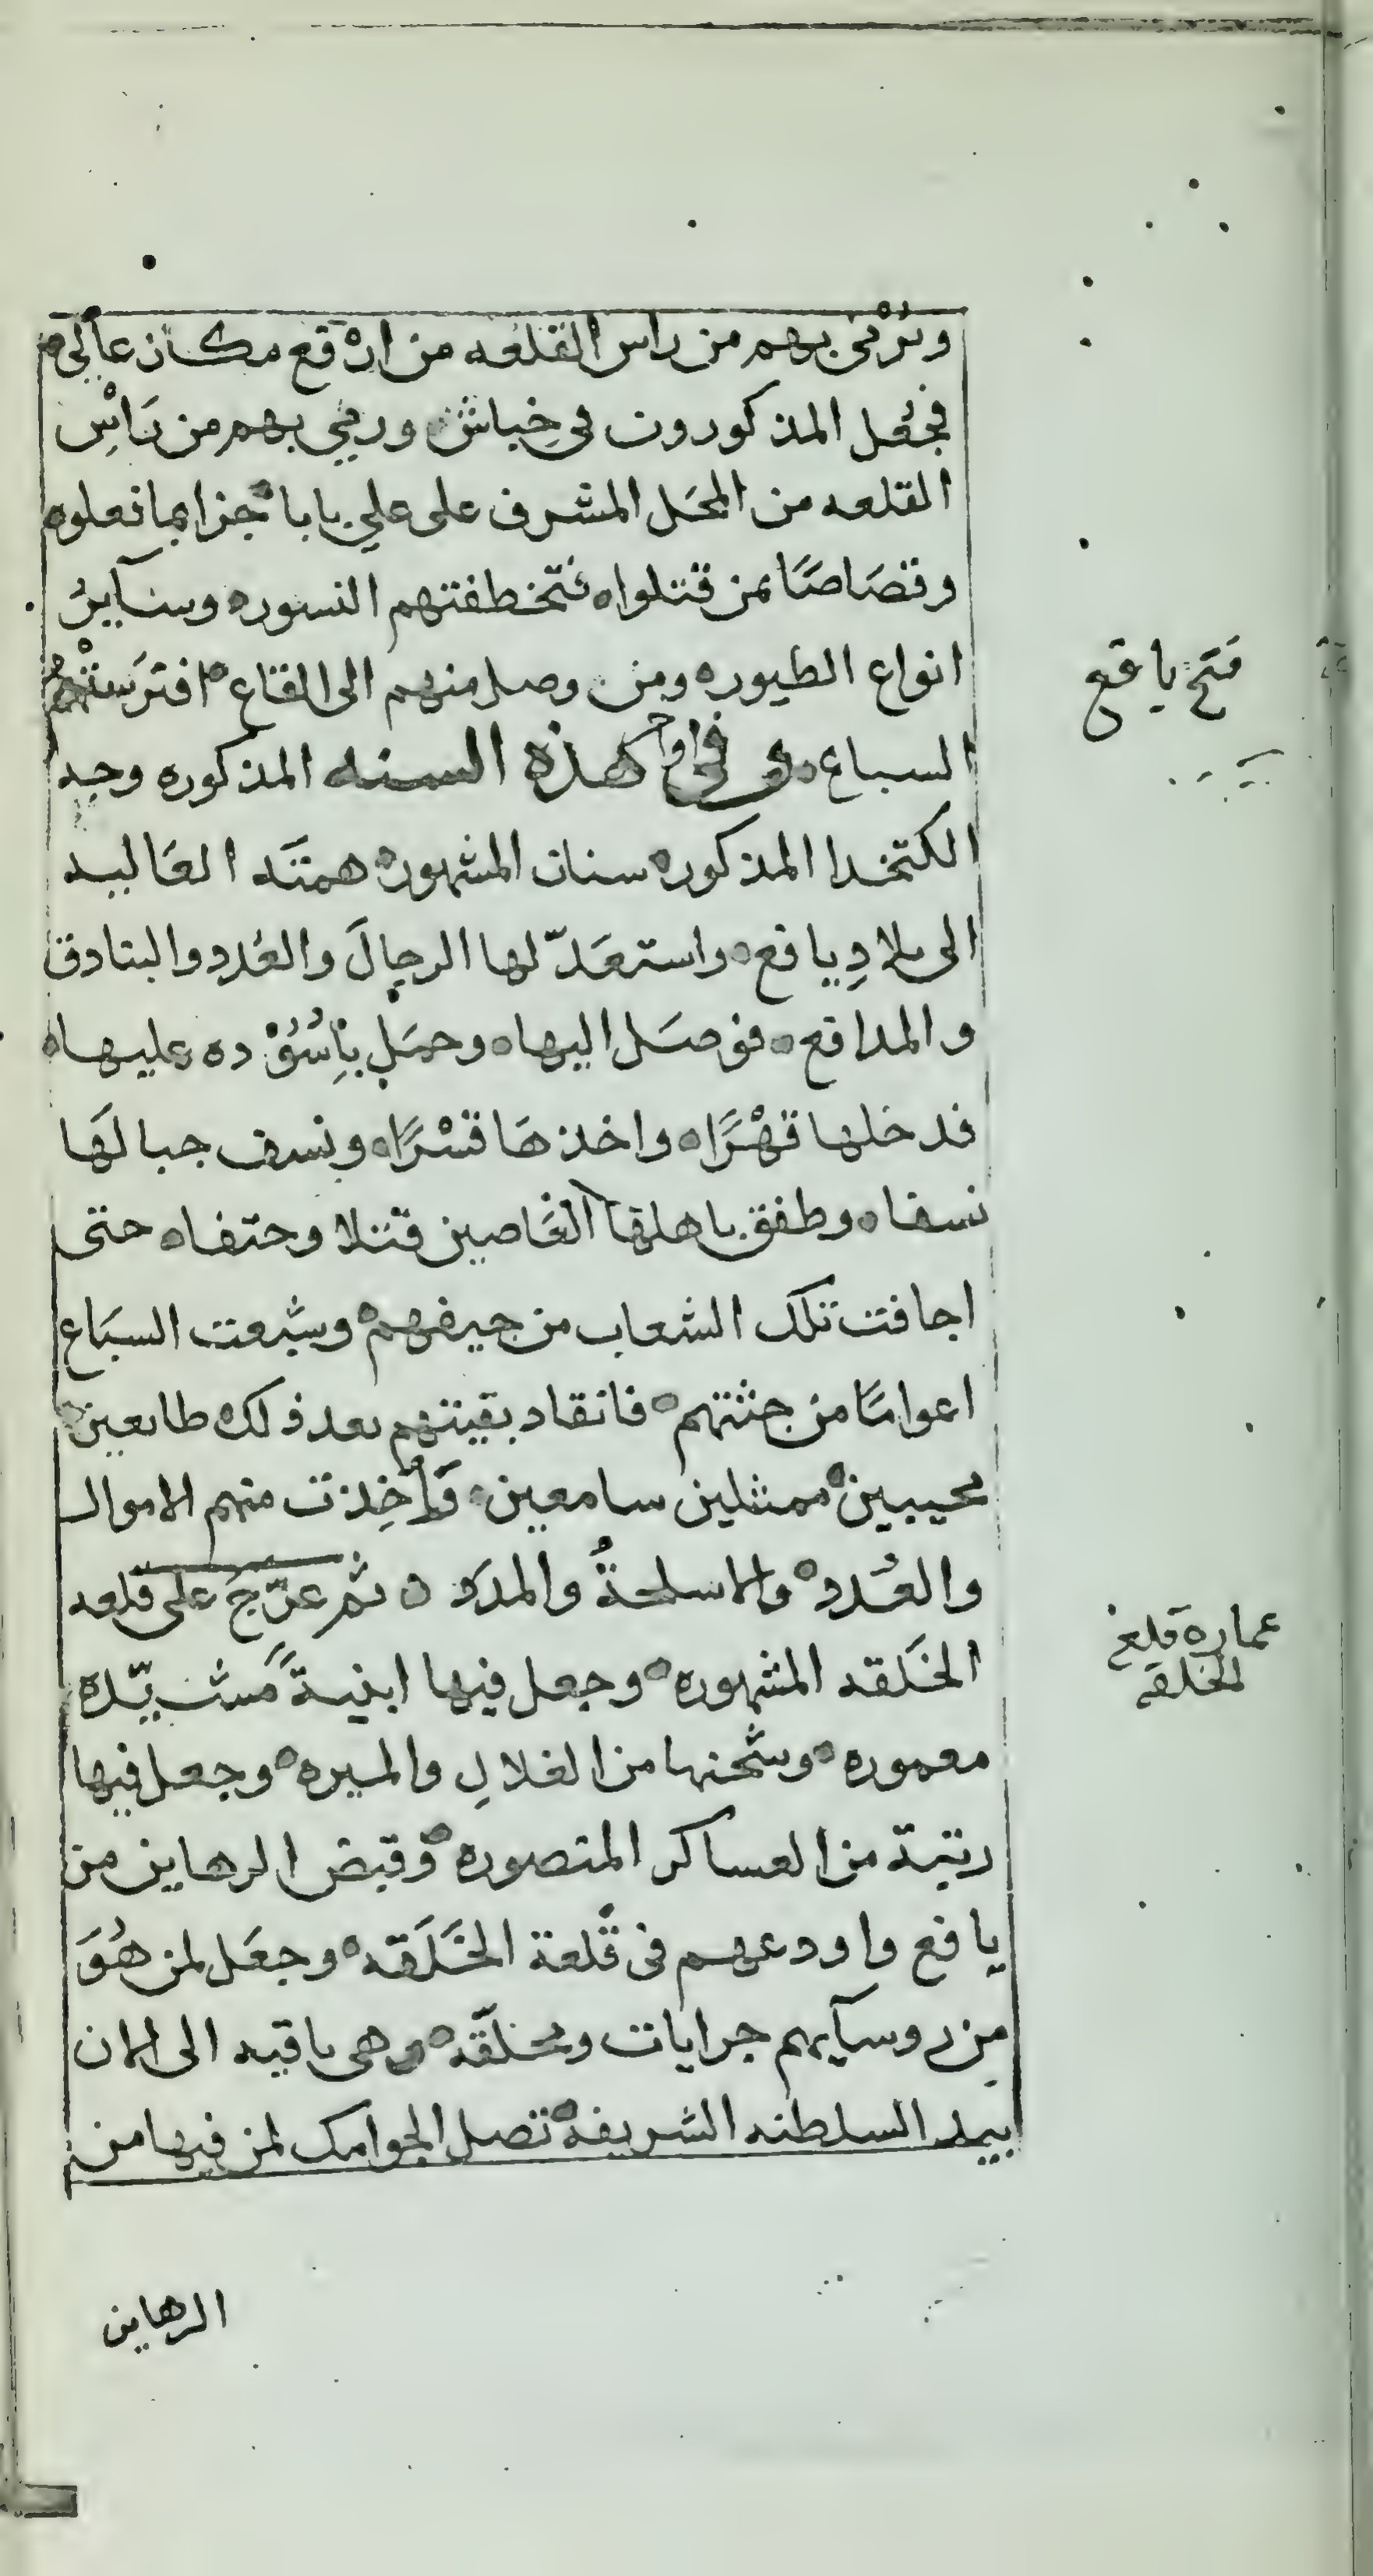 ويُرْمى بهم من راس القلعه من ارْفع مكان عالي
فجُعل المذكورون في خِباش ورمي بهم من رَاسْ
القلعه من المحَل المشرف على علي بابا جزا بما فعلوه
وقصَاصًا بمن قتلواه فتخطفتهم النسوره وسآيرُ
انواع الطيوره ومن وصل منهم الى القاع افترَستْهم
السباع وفي هذه السنه المذكوره وجه
الكتخدا المذكوره سنان المشهوره همتَه العَاليه
الى بلادِ يافع واستعَدّ لها الرجالَ والعُدد والبنادق
والمدافع فوصَل اليهاه وحمَل باُسُوْده عليهاه
فدخلها قهْرًاه واخذهَا قسْرًاه ونسف جبالهَا
نسفاه وطفق باهلها العَاصين قتلا وحتفاه حتى
اجافت تلك الشعاب من جيفهم وشبعت السبَاع
اعوامًا من جثثهم فانقاد بقيتهم بعد ذلك طايعين
مجيبين ممتثلين سامعين فأُخِذت منهم الاموال
والعُدد والاسلحةُ والمدَد ثم عرّجَ على قلعه
الخَلقه المشهوره وجعل فيها ابنيةً مشيّده
معموره وشحنها من الغلالِ والميره وجعل فيها
رتبة من العساكر المنصوره وقبض الرهاين من
يافع واودعهم فى قلعة الخَلَقه وجعَل لمن هُوَ
مِن روسآيهم جرايات وهى باقيه الى الان
بيد السلطنه الشريفه تصل الجوامك لمن فيها من
الرهاين
فتح يافع
عمارة قلعة
الخلقه